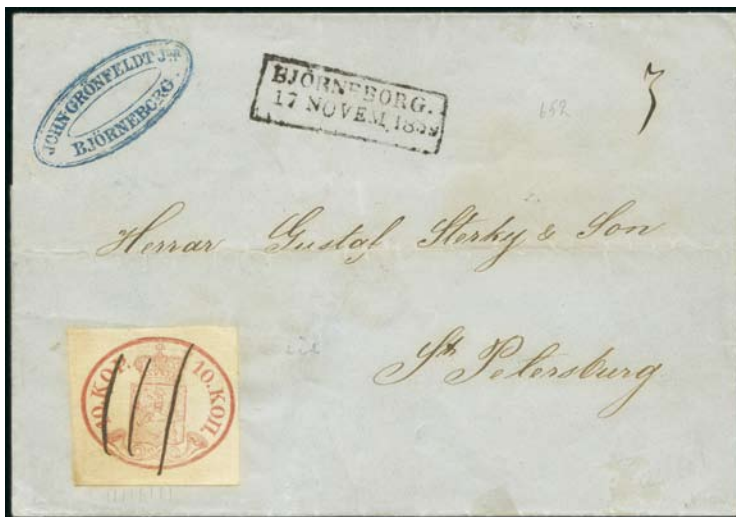 JOHN GRÖNFELDT Jnr
BJÖRNEBORG.
BJÖRNEBORG.
17 NOVEM. 1859
652
3
Herrar Gustaf Sterky & Son
St Petersburg
10.KOP. 10.КОП.